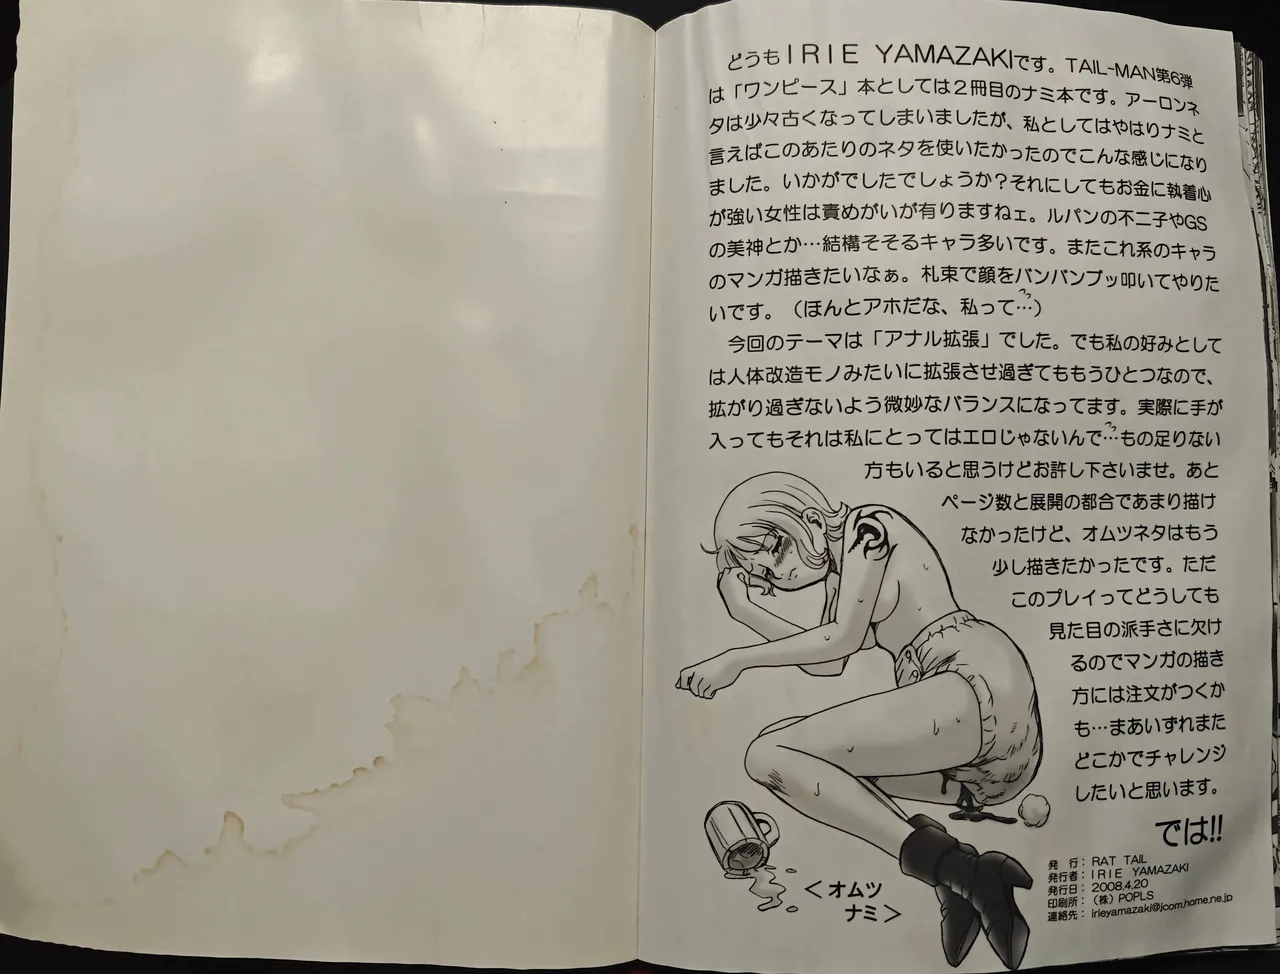 どうもIRIE YAMAZAKIです。TAIL-MAN第6弾
は「ワンピース」本としては２冊目のナミ本です。アーロンネ
タは少々古くなってしまいましたが、私としてはやはりナミと
言えばこのあたりのネタを使いたかったのでこんな感じになり
ました。いかがでしたでしょうか？それにしてもお金に執着心
が強い女性は責めがいが有りますねェ。ルパンの不二子やGS
の美神とか…結構そそるキャラ多いです。またこれ系のキャラ
のマンガ描きたいなぁ。札束で顔をバンバンブッ叩いてやりた
いです。（ほんとアホだな、私って…）
今回のテーマは「アナル拡張」でした。でも私の好みとして
は人体改造モノみたいに拡張させ過ぎてももうひとつなので、
拡がり過ぎないよう微妙なバランスになってます。実際に手が
入ってもそれは私にとってはエロじゃないんで…もの足りない
方もいると思うけどお許し下さいませ。あと
ページ数と展開の都合であまり描け
なかったけど、オムツネタはもう
少し描きたかったです。ただ
このプレイってどうしても
見た目の派手さに欠け
るのでマンガの描き
方には注文がつくか
も…まあいずれまた
どこかでチャレンジ
したいと思います。
では!!
＜オムツ
ナミ＞
発　行：RAT TAIL
発行者：IRIE YAMAZAKI
発行日：2008.4.20
印刷所：（株）POPLS
連絡先：irieyamazaki@jcom.home.ne.jp